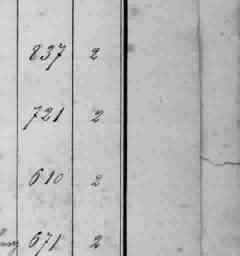 837 2
721 2
610 2
671 2